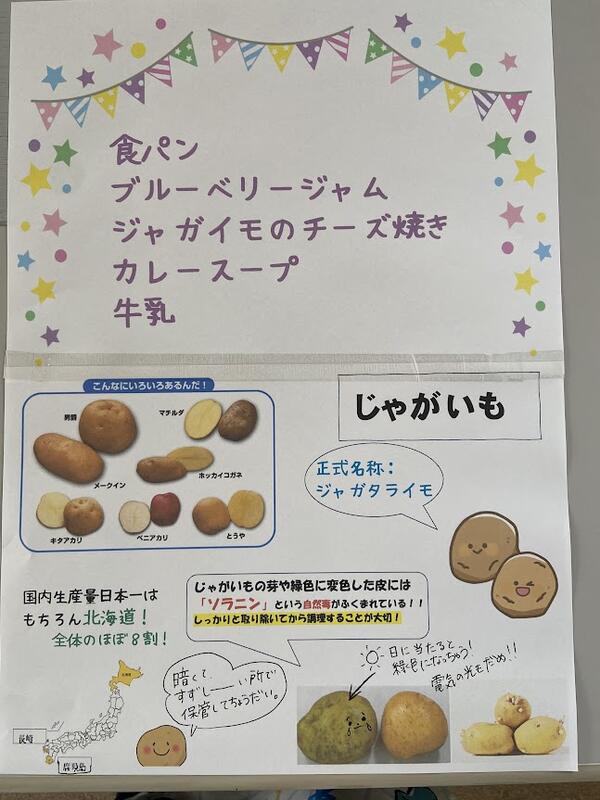 食パン
ブルーベリージャム
ジャガイモのチーズ焼き
カレースープ
牛乳
こんなにいろいろあるんだ！
男爵
マチルダ
メークイン
ホッカイコガネ
キタアカリ
ベニアカリ
とうや
じゃがいも
正式名称：
ジャガタライモ
国内生産量日本一は
もちろん北海道！
全体のほぼ8割！
じゃがいもの芽や緑色に変色した皮には
「ソラニン」という自然毒がふくまれている！！
しっかりと取り除いてから調理することが大切！
日に当たると
緑色になっちゃう！
電気の光もだめ！！
暗くて、
すずしーーい所で
保管してちょうだい。
北海道
長崎
鹿児島